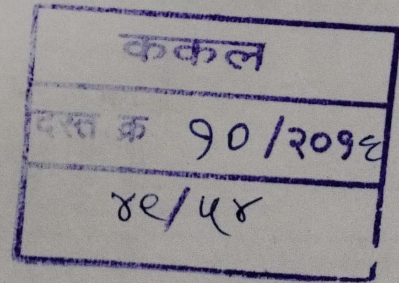 ककल
दस्त क्र १०/२०१६
४९/५४